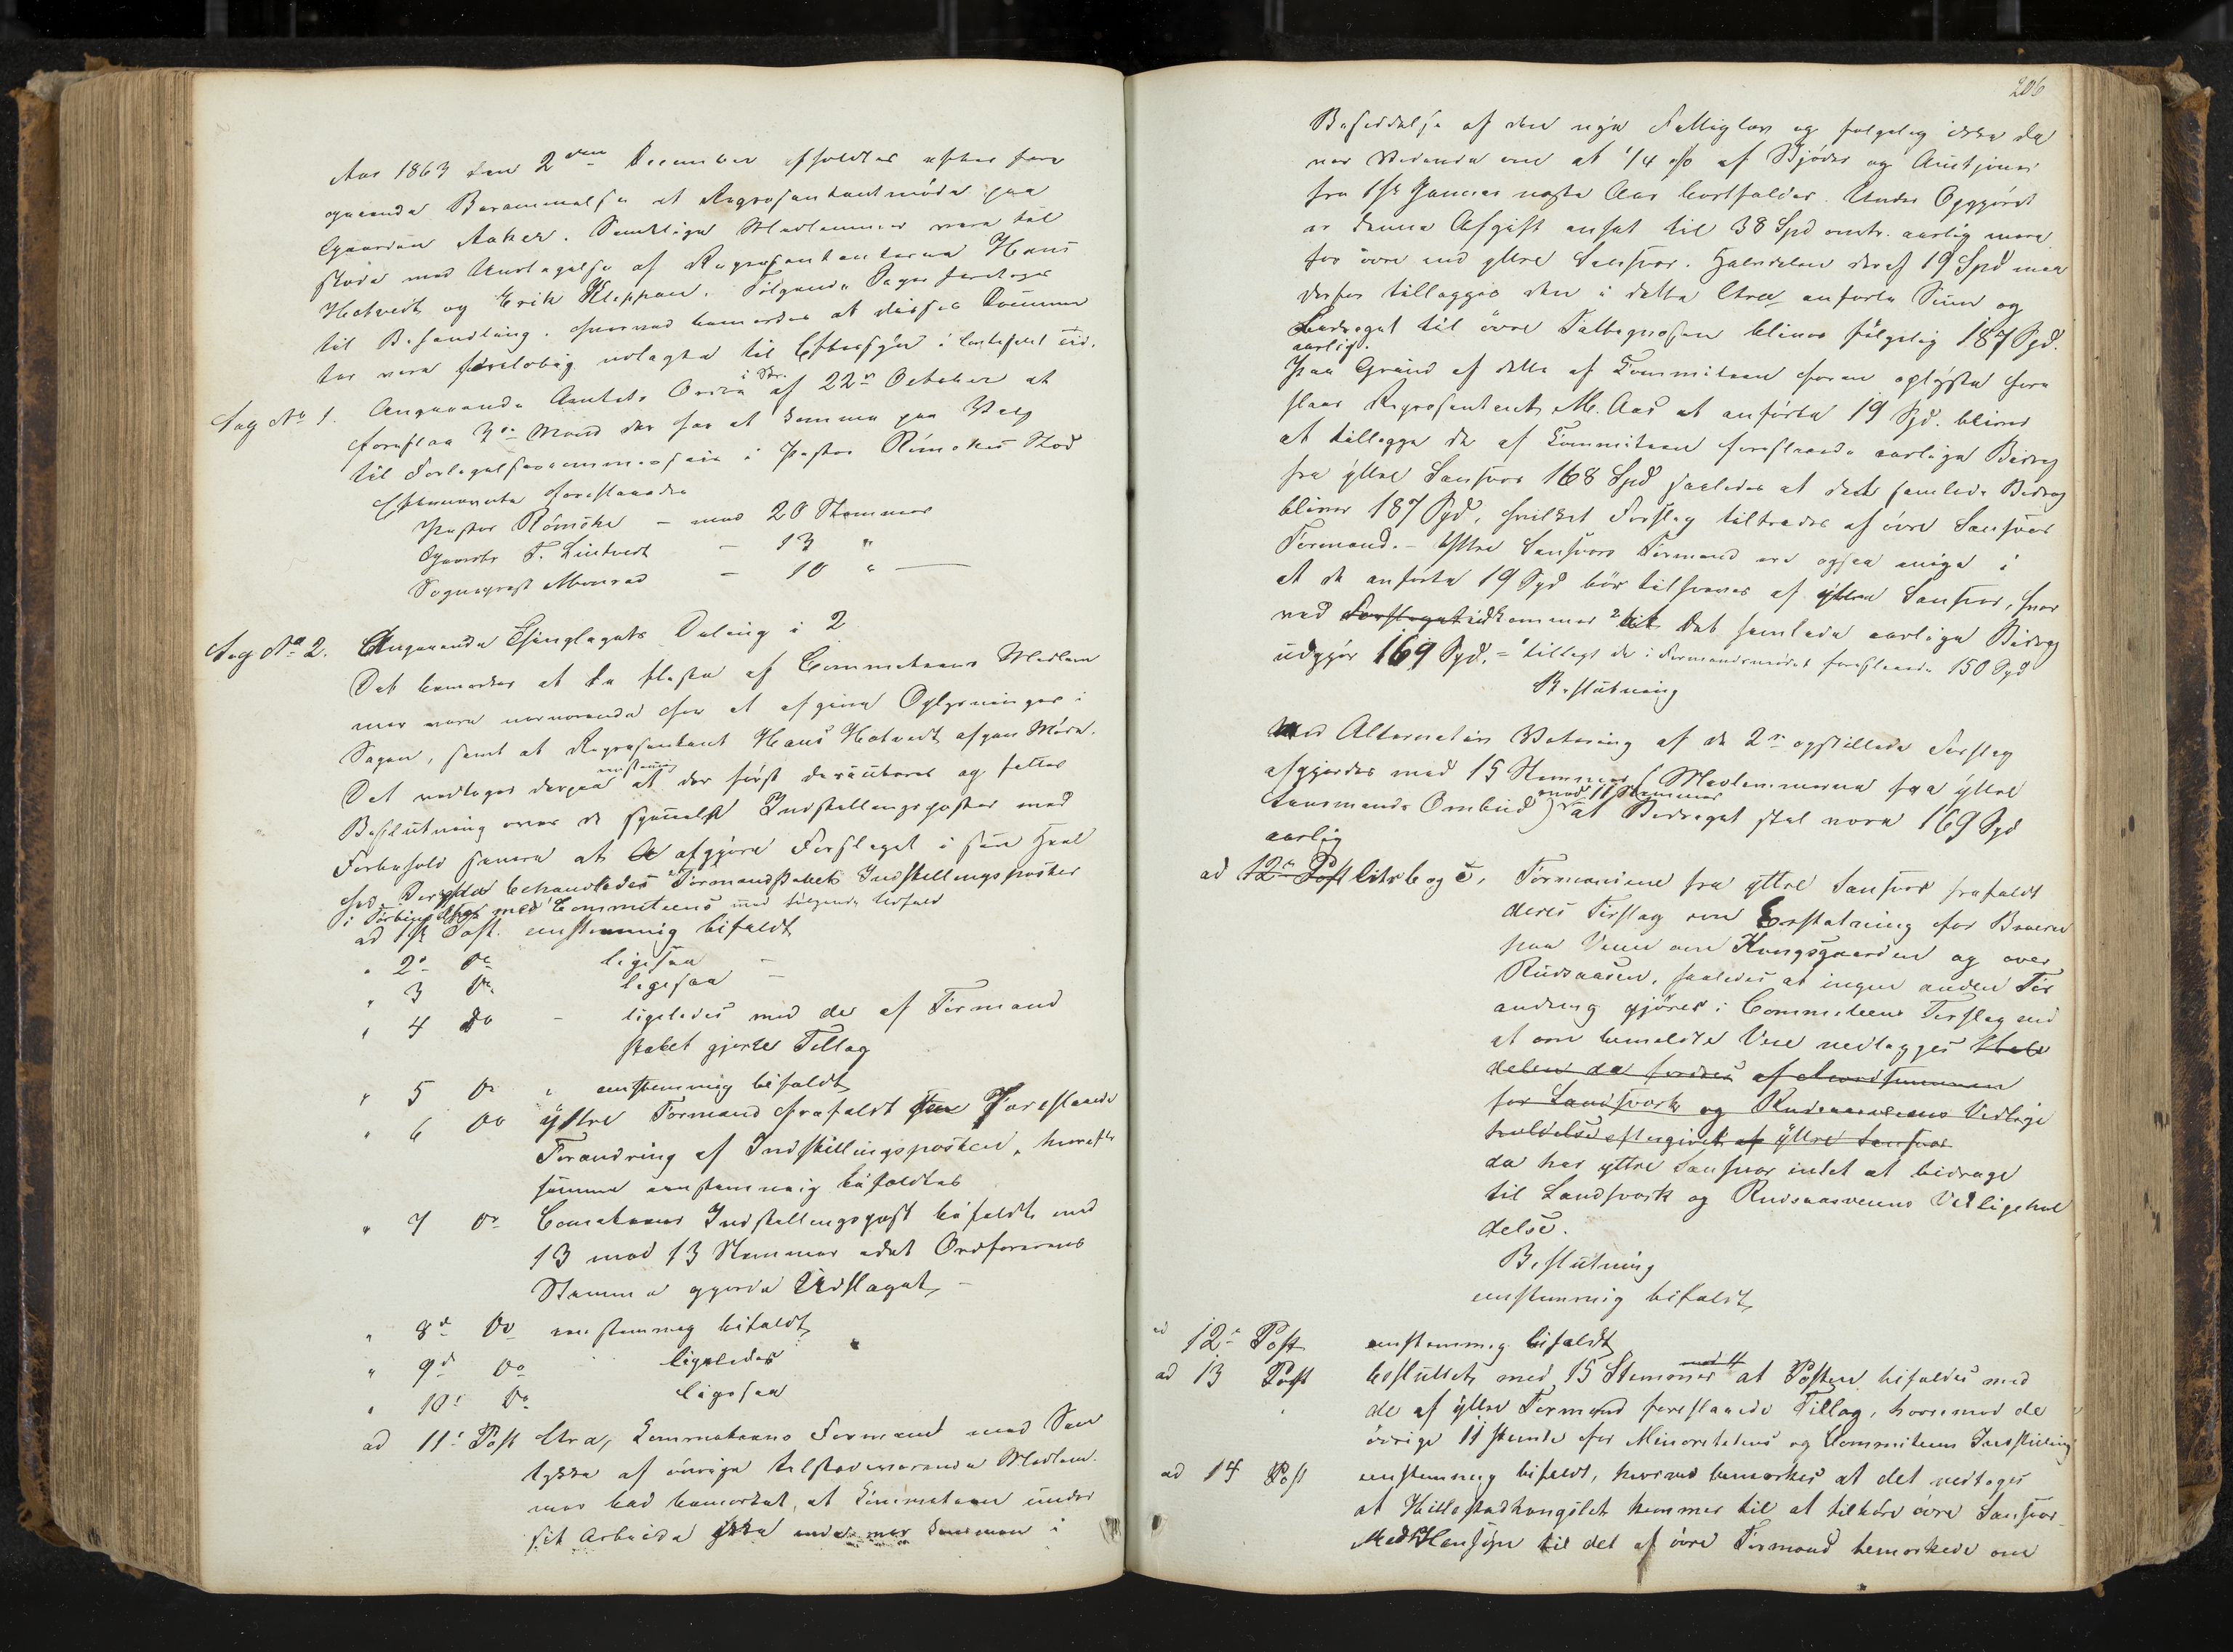 Aar 1863 den 2den December afholdtes efter fore
gaaende Berammelse et Repræsentantmøde paa
Gaarden Aaker. Samtlige Medlemmer vare til
stede med Undtagelse af Repræsentanterne Hans
Hotvedt og Erik Kleppan. Følgende Sager foretoges
til Behandling. hvorved bemærkes at disses Documen
ter vare foreløbig udlagte til Eftersyn i
Sag No 1. Angaaende Amtets Ordre i Skr. af 22de October at
foreslaa 3de Mænd der har at komme paa Valg
til Forligelsescommissair i Pastor Rømckes Sted
Efternævnte foreslaaedes
Pastor Rømcke – med 20 Stemmer
Gaardbr T. Lindtvedt – 13 "
Sogneprest Monrad – 10 "
Sag No 2. Angaaende Thinglagets Deling i 2
Det bemærkes at de fleste af Commiteens Medlem
mer vare nærværende for at afgive Oplysninger i
Sagen, samt at Repræsentant Hans Hotvedt afgav Møde.
Det vedtoges derpaa eenstemmig at der først debatteres og fattes
Beslutning over de specielle Indstillingsposter med
Forbehold senere at afgjøre Forslaget i sin Heel
hed. Derefter behandledes Formandskabets Indstillingsposter
i Forbindelse med Commiteens med følgende Udfald
ad 1ste Post. enstemmig bifaldt
" 2den Do ligesaa –
" 3 Do ligesaa –
" 4 Do – ligeledes med det af Formand
skabet gjorte Tillæg
" 5 Do " enstemmig bifaldt
" 6 Do yttre Formænd frafaldt sin Foreslaaede
Forandring af Indstillingsposten, hvorefter
samme enstemmig bifaldtes
" 7 Do Comiteens Indstillingspost bifaldt med
13 mod 13 Stemmer idet Ordførerens
Stemme gjorde Udslaget, –
" 8de Do eenstemmig bifaldt,
" 9de Do ligeledes
" 10de Do ligesaa
ad 11te Post Litra a, Commiteens Formand med Sam
tykke af øvrige tilstedeværende Medlem-
mer bad bemærket, at Commiteen under
sit Arbeide ikke endnu var kommen i
206
Besiddelse af den nye Fattiglov og følgelig ikke da
var vidende om at 1/4 % af Skjøder og Auctioner
fra 1ste Januar næste Aar bortfalder. Under Opgjøret
er denne Afgift ansat til 38 Spd omtr. aarlig mere
for øvre end yttre Sansvær. Halvdelen deraf 19 Spd maa
derfor tillægges den i dette Litra anførte Sum og
Bidraget til øvre Fattigvæsen bliver følgelig 187 Spd.
aarlig.
Paa Grund af dette af Commiteen foran oplyste fore
slaar Repræsentant M. Aas at anførte 19 Spd. bliver
at tillægge de af Commiteen foreslaaede aarlige Bidrag
fra yttre Sansvær 168 Spd saaledes at det samlede Bidrag
bliver 187 Spd, hvilket Forslag tiltrædes af øvre Sansvær
Formænd. – Yttre Sansværs Formænd ere ogsaa enige i
at de anførte 19 Spd bør tilsvares af yttre Sansvær, hvor
ved Forslaget udkommer til Det samlede aarlige Bidrag
udgjør 169 Spd. = tillagt de i Formandsmødet foreslaaede 150 Spd
Beslutning
Ved Alternativ Votering af de 2de opstillede Forslag
afgjordes med 15 Stemmer (Medlemmerne fra yttre
Lensmands Ombud) mod 11 Stemmer at Bidraget skal være 169 Spd
aarlig
ad 12te Post Litr b og c, Formændene fra yttre Sansvær frafaldt
deres Forslag om Erstatning for Broerne
paa Veien over Kongsgaarden og over
Rudsaasen, saaledes at ingen anden For
andring gjøres i Commiteens Forslag end
at om bemeldte Vei nedlægges Halv
delen da fordres af
for Landsværk og Rudsaasveiens Vedlige
holdelse eftergivet af yttre Sansvær
da har yttre Sansvær intet at bidrage
til Landsværk og Rudsaasveiens Vedligehol
delse.
Beslutning
enstemmig bifaldt,
ad 12te Post enstemmig bifaldt
ad 13 Post besluttet med 15 Stemmer mod 11 at Posten bifaldes med
de af yttre Formænd foreslaaede Tillæg, hvorimod de
øvrige 11 stemte for Minoritetens og Commiteens Indstilling
ad 14 Post enstemmig bifaldt, hvorved bemærkes at det vedtoges
at Hillestadhengslet kommer til at tilhøre øvre Sansvær
Med Hensyn til det af øvre Formænd bemærkede om